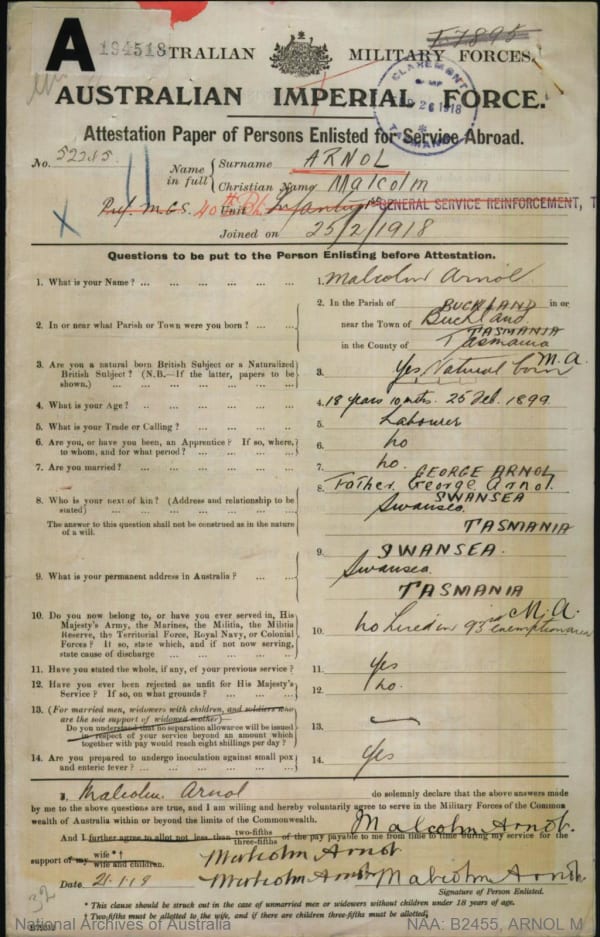 A
194518
TRALIAN MILITARY FORCES.
AUSTRALIAN IMPERIAL FORCE.
CLAREMONT
TASMANIA
Attestation Paper of Persons Enlisted for Service Abroad.
No.
Name in full
Surname ARNOL
Christian Name Malcolm
40th Bn. Unit Infantry GENERAL SERVICE REINFORCEMENT, T
Joined on 25/2/1918
Questions to be put to the Person Enlisting before Attestation.
1. What is your Name? ... 1. Malcolm Arnol
2. In or near what Parish or Town were you born? ... 2. In the Parish of BUCKLAND in or
near the Town of Buckland
TASMANIA
in the County of Tasmania
3. Are you a natural born British Subject or a Naturalized
British Subject? (N.B.—If the latter, papers to be
shown.) ... 3. Yes Natural born M.A.
4. What is your Age? ... 4. 18 years 10 mths. 25 Feb. 1899
5. What is your Trade or Calling? ... 5. Labourer
6. Are you, or have you been, an Apprentice? If so, where,
to whom, and for what period? ... 6. No
7. Are you married? ... 7. No.
8. Who is your next of kin? (Address and relationship to be
stated) ... 8. GEORGE ARNOL
Father. George Arnol.
SWANSEA
Swansea.
TASMANIA
The answer to this question shall not be construed as in the nature
of a will.
9. What is your permanent address in Australia? ... 9. SWANSEA.
Swansea.
TASMANIA
10. Do you now belong to, or have you ever served in, His
Majesty's Army, the Marines, the Militia, the Militia
Reserve, the Territorial Force, Royal Navy, or Colonial
Forces? If so, state which, and if not now serving,
state cause of discharge ... 10. No Lived in 93rd exemption area M.A.
11. Have you stated the whole, if any, of your previous service? 11. Yes
12. Have you ever been rejected as unfit for His Majesty's
Service? If so, on what grounds? ... 12. No.
13. (For married men, widowers with children, and soldiers who
are the sole support of widowed mother)—
Do you understand that no separation allowance will be issued
in respect of your service beyond an amount which
together with pay would reach eight shillings per day? ... 13.
14. Are you prepared to undergo inoculation against small pox
and enteric fever? ... 14. Yes
I, Malcolm Arnol do solemnly declare that the above answers made
by me to the above questions are true, and I am willing and hereby voluntarily agree to serve in the Military Forces of the Common
wealth of Australia within or beyond the limits of the Commonwealth.
Malcolm Arnol.
And I further agree to allot not less than two-fifths three-fifths of the pay payable to me from time to time during my service for the
support of my wife*† wife and children. Malcolm Arnol
Date 21.1.18 Malcolm Arnol Malcolm Arnol
Signature of Person Enlisted.
32
* This clause should be struck out in the case of unmarried men or widowers without children under 18 years of age.
† Two-fifths must be allotted to the wife, and if there are children three-fifths must be allotted.
National Archives of Australia
NAA: B2455, ARNOL M